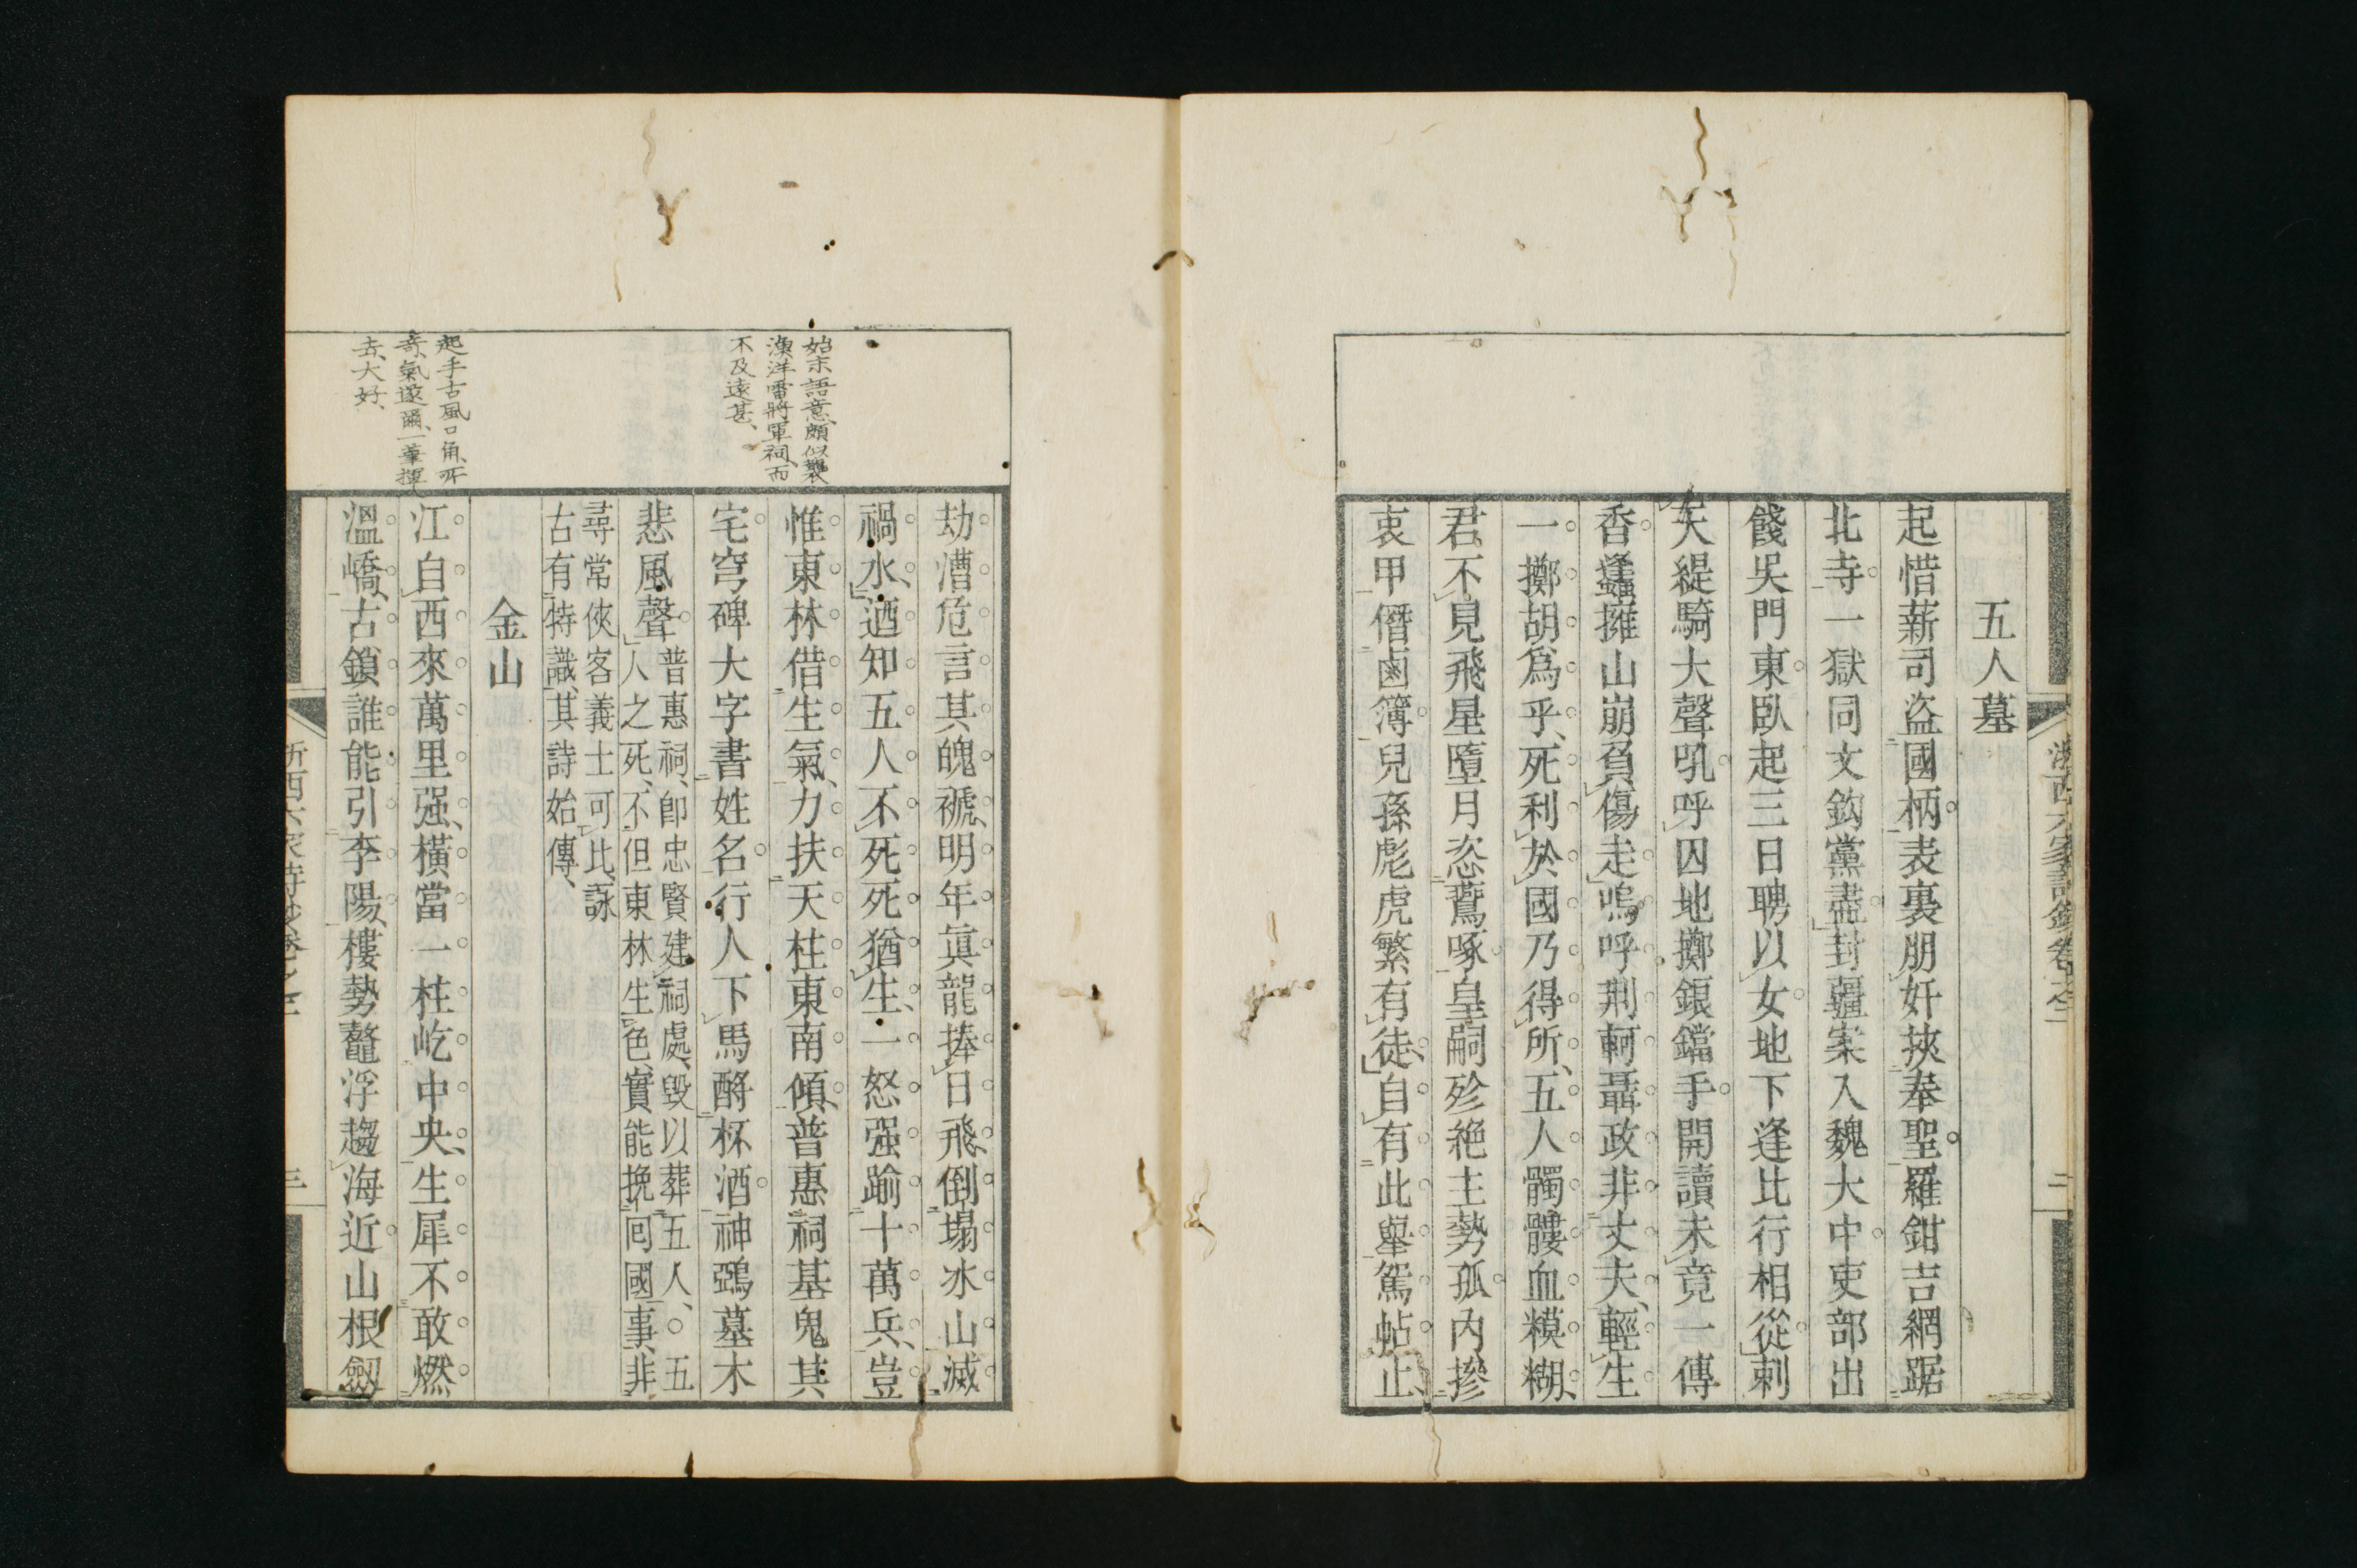 五人墓
起惜薪司盜國柄表裏朋奸挾奉聖羅鉗吉網踞
北寺一獄同文鈎黨盡封疆案入魏大中吏部出
餞吳門東臥起三日聘以女地下逢比行相從刺
天緹騎大聲吼呼囚地擲鋃鐺手開讀未竟一傳
香蠭擁山崩負傷走嗚呼荆軻聶政非丈夫輕生
一擲胡爲乎死利於國乃得所五人髑髏血糢糊
君不見飛星墮月恣鷰啄皇嗣殄絶主勢孤內摻
衷甲僭鹵簿兒孫彪虎繁有徒自有此舉駕帖止
劫漕危言其魄褫明年眞龍捧日飛倒塌冰山滅
禍水迺知五人不死死猶生一怒强踰十萬兵豈
惟東林借生氣力扶天柱東南傾普惠祠基鬼其
宅穹碑大字書姓名行人下馬酹杯酒神鵶墓木
悲風聲
普惠祠卽忠賢建祠處毀以葬五人○五
人之死不但東林生色實能挽回國事非
尋常俠客義士可比詠
古有特識其詩始傳
始末語意頗似襲
漁洋雷將軍祠而
不及遠甚
金山
江自西來萬里强橫當一柱屹中央生犀不敢燃
溫嶠古鎖誰能引李陽樓勢鼇浮趨海近山根劔
起手古風口角所
奇氣邃爾一筆揮
去大好
浙西六家詩鈔卷之二
二
三